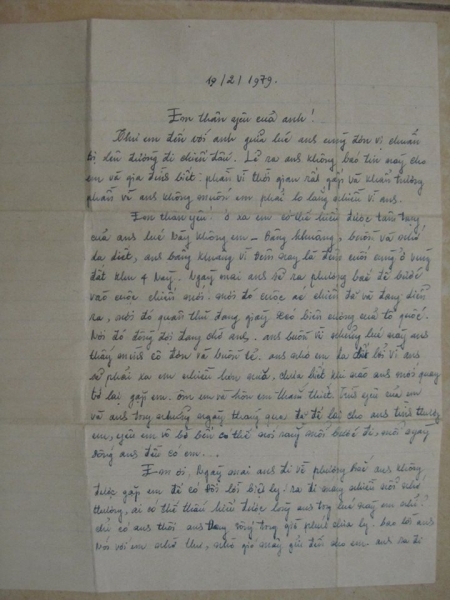 19/2/1979.
Em thân yêu của anh!
Thư em đến với anh giữa lúc anh cùng đơn vị chuẩn
bị lên đường đi chiến đấu. Lẽ ra anh không báo tin này cho
em và gia đình biết: phần vì thời gian rất gấp và khẩn trương
phần vì anh không muốn em phải lo lắng nhiều vì anh.
Em thân yêu! ở xa em có thể hiểu được tâm trạng
của anh lúc này không em – Bâng khuâng, buồn và nhớ
da diết, anh bâng khuâng vì đêm nay là đêm cuối cùng ở vùng
đất khu 4 này. Ngày mai anh sẽ ra phương bắc để bước
vào cuộc chiến mới. nơi đó cuộc ác chiến đã và đang diễn
ra, nơi đó quân thù đang giày xéo biên cương của tổ quốc.
Nơi đó đồng đội đang chờ anh. anh buồn vì những lúc này anh
thấy mình cô đơn và buồn tẻ. anh nhớ em da diết bởi vì anh
sẽ phải xa em nhiều hơn nữa, chưa biết khi nào anh mới quay
trở lại gặp em. ôm em và hôn em thắm thiết. Tình yêu của em
và anh trong những ngày tháng qua đã để lại cho anh tình thương
em, yêu em vô bờ bến có thể nói rằng mỗi bước đi, mỗi ngày
sống anh đều có em...
Em ơi, Ngày mai anh đi về phương bắc anh không
được gặp em để có đôi lời biệt ly: ra đi mang nhiều nỗi nhớ
thương, ai có thể thấu hiểu được lòng anh trong lúc này em nhỉ?
chỉ có anh thôi anh đang sống trong giờ phút chia ly. bao lời anh
nói với em nhờ thư, nhờ gió mây gửi đến cho em. anh ra đi